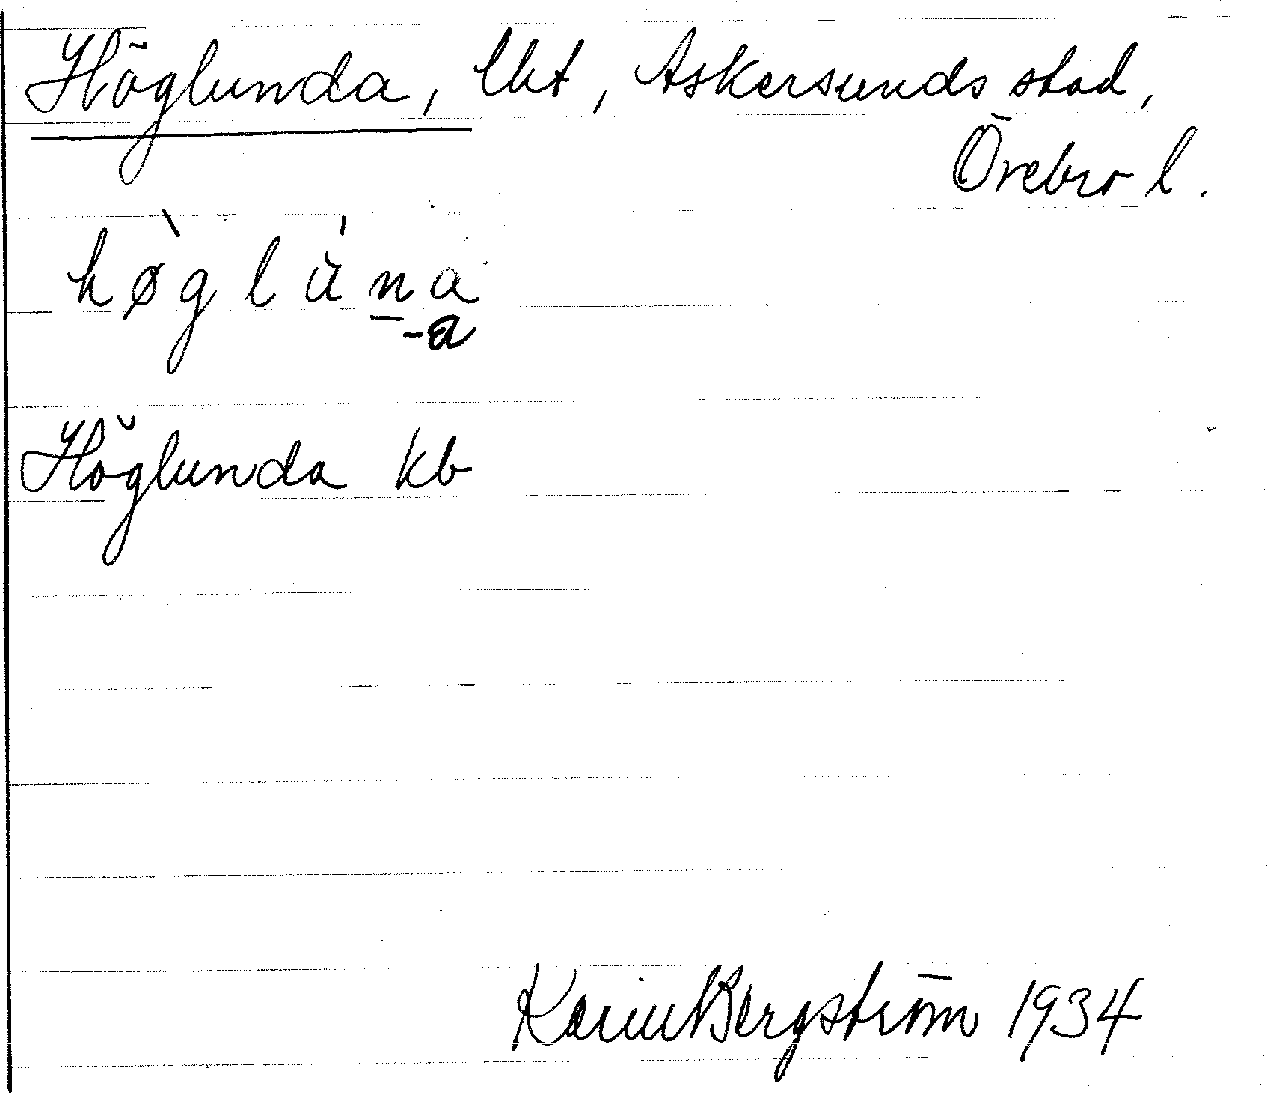 Höglunda, lht, Askersunds stad,
Örebro l.
hø̀glúna
-a
Höglunda kb
Karin Bergström 1934